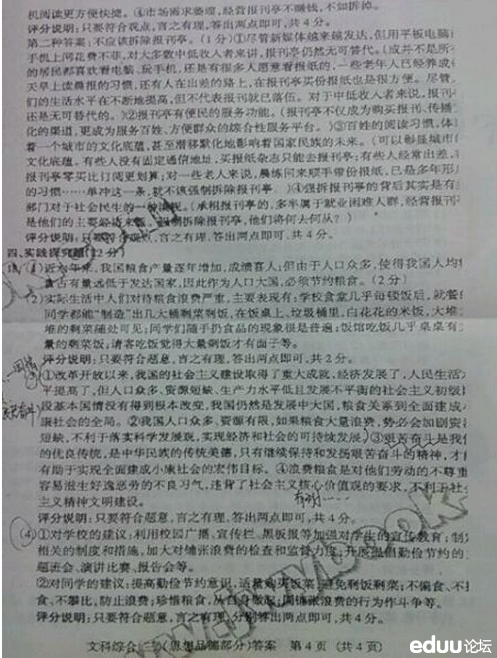 机阅读更方便快捷。④市场需求萎缩，经营报刊亭不赚钱，不如拆掉。
评分说明：只要符合观点，言之有理，答出两点即可，共4分。
第二种答案：不应该拆除报刊亭。（1分）①尽管新媒体越来越发达，但用平板电脑
手机上网花费不菲，对大多数中低收入者来讲，报刊亭仍然无可替代。（或并不是所
的居民都喜欢看电脑、玩手机，还是有很多人愿意看报纸的，一些老年人已经养成
天早上读晨报的习惯，还有人在出差的路上，在报刊亭买份报纸也是很方便。尽管
们的生活水平在不断地提高，但不代表报刊就已落伍。对于中低收入者来说，报刊
还是无可替代的。）②报刊亭有便民的服务功能。（报刊亭不仅成为购买报刊、传播
化的渠道，更成为服务百姓、方便群众的综合性服务平台。）③百姓的阅读习惯，体
着一个城市的文化底蕴，甚至潜移默化地影响着国家民族的未来。（可以彰显城市
文化底蕴。有些人没有固定通信地址，买报纸杂志只能去报刊亭；有些人经常出差，
报刊亭零买比订阅更划算；对一些老人来说，晨练回来顺手带份报纸，已是多年形
的习惯……单冲这一条，就不该强制拆除报刊亭。）④强拆报刊亭的背后其实是有
部门对于社会民生的一种漠视。（承租报刊亭的，多半属于就业困难人群，经营报刊
是他们的主要经济来源，强制拆除报刊亭，他们将何去何从？）
评分说明：只要符合观点，言之有理，答出两点即可，共4分。
四、实践探究题（12分）
(1)近六年来，我国粮食产量逐年增加，成绩喜人；但由于人口众多，使得我国人均
食占有量远低于发达国家，因此作为人口大国，必须节约粮食。（2分）
(2)实际生活中人们对待粮食浪费严重，主要表现有：学校食堂几乎每顿饭后，就餐
同学都能"制造"出几大桶剩菜剩饭，在饭桌上、垃圾桶里，白花花的米饭，大堆
堆的剩菜随处可见；同学们随手扔食品的现象很是普遍；饭馆吃饭几乎桌桌有
量的剩菜饭；请客吃饭觉得大量剩饭才有面子等。
评分说明：只要符合题意，言之有理，答出两点即可，共2分。
①改革开放以来，我国的社会主义建设取得了重大成就，经济发展了，人民生活
平提高了，但人口众多、资源短缺、生产力水平低且发展不平衡的社会主义初级
段基本国情没有得到根本改变，我国仍然是发展中大国，粮食关系到全面建成
康社会的全局。②我国人口众多，资源有限，如果粮食大量浪费，势必会加剧资
短缺，不利于落实科学发展观，实现经济和社会的可持续发展。③艰苦奋斗是我
的优良传统，是中华民族的传统美德，只有继续保持和发扬艰苦奋斗的精神，才
有助于实现全面建成小康社会的宏伟目标。④浪费粮食是对他们劳动的不尊重
容易滋生好逸恶劳的不良习气，违背了社会主义核心价值观的要求，不利于社
主义精神文明建设。
评分说明：只要符合题意，言之有理，答出两点即可，共4分。
(4)①对学校的建议：利用校园广播、宣传栏、黑板报等加强对学生的宣传教育；制
相关的制度和措施，加大对铺张浪费的检查和监督力度；开展提倡勤俭节约的
题班会、演讲比赛、报告会等。
②对同学的建议：提高勤俭节约意识，适量购买饭菜，避免剩饭剩菜；不偏食、不
食、不攀比，防止浪费；珍惜粮食，从自身做起，同铺张浪费的行为作斗争等。
评分说明：只要符合题意，言之有理，分别答出两点即可，共4分。
文科综合（二）（思想品德部分）答案 第4页（共4页）
eduu论坛